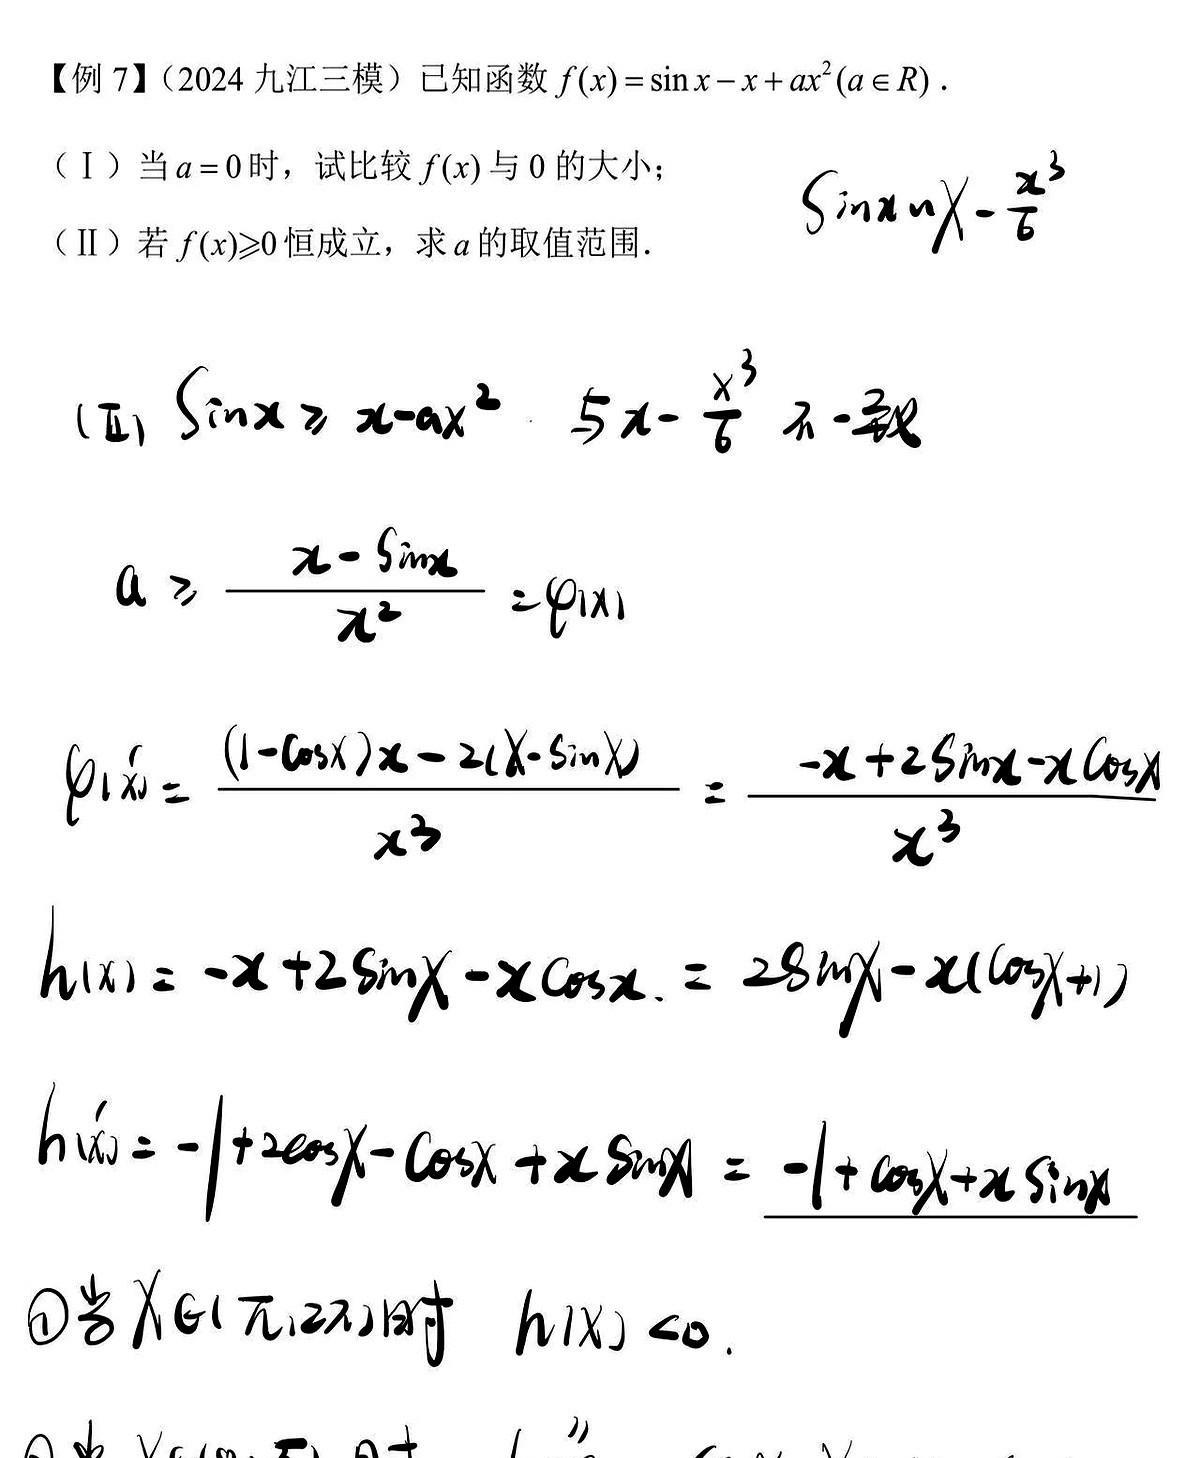 【例 7】（2024 九江三模）已知函数 f(x) = sin x − x + ax²(a ∈ R) .
（Ⅰ）当 a = 0 时，试比较 f(x) 与 0 的大小；
sinx ~ x - x³/6
（Ⅱ）若 f(x)≥0 恒成立，求 a 的取值范围.
(Ⅱ) sinx ≥ x-ax² 与 x - x³/6 不一致
a ≥ (x - sinx)/x² = φ(x)
φ'(x) = ((1-cosx)x - 2(x-sinx))/x³ = (-x+2sinx-xcosx)/x³
h(x) = -x+2sinx-xcosx. = 2sinx-x(cosx+1)
h'(x) = -1+2cosx-cosx+xsinx = -1+cosx+xsinx
①当 x∈(π,2π)时 h(x)<0.